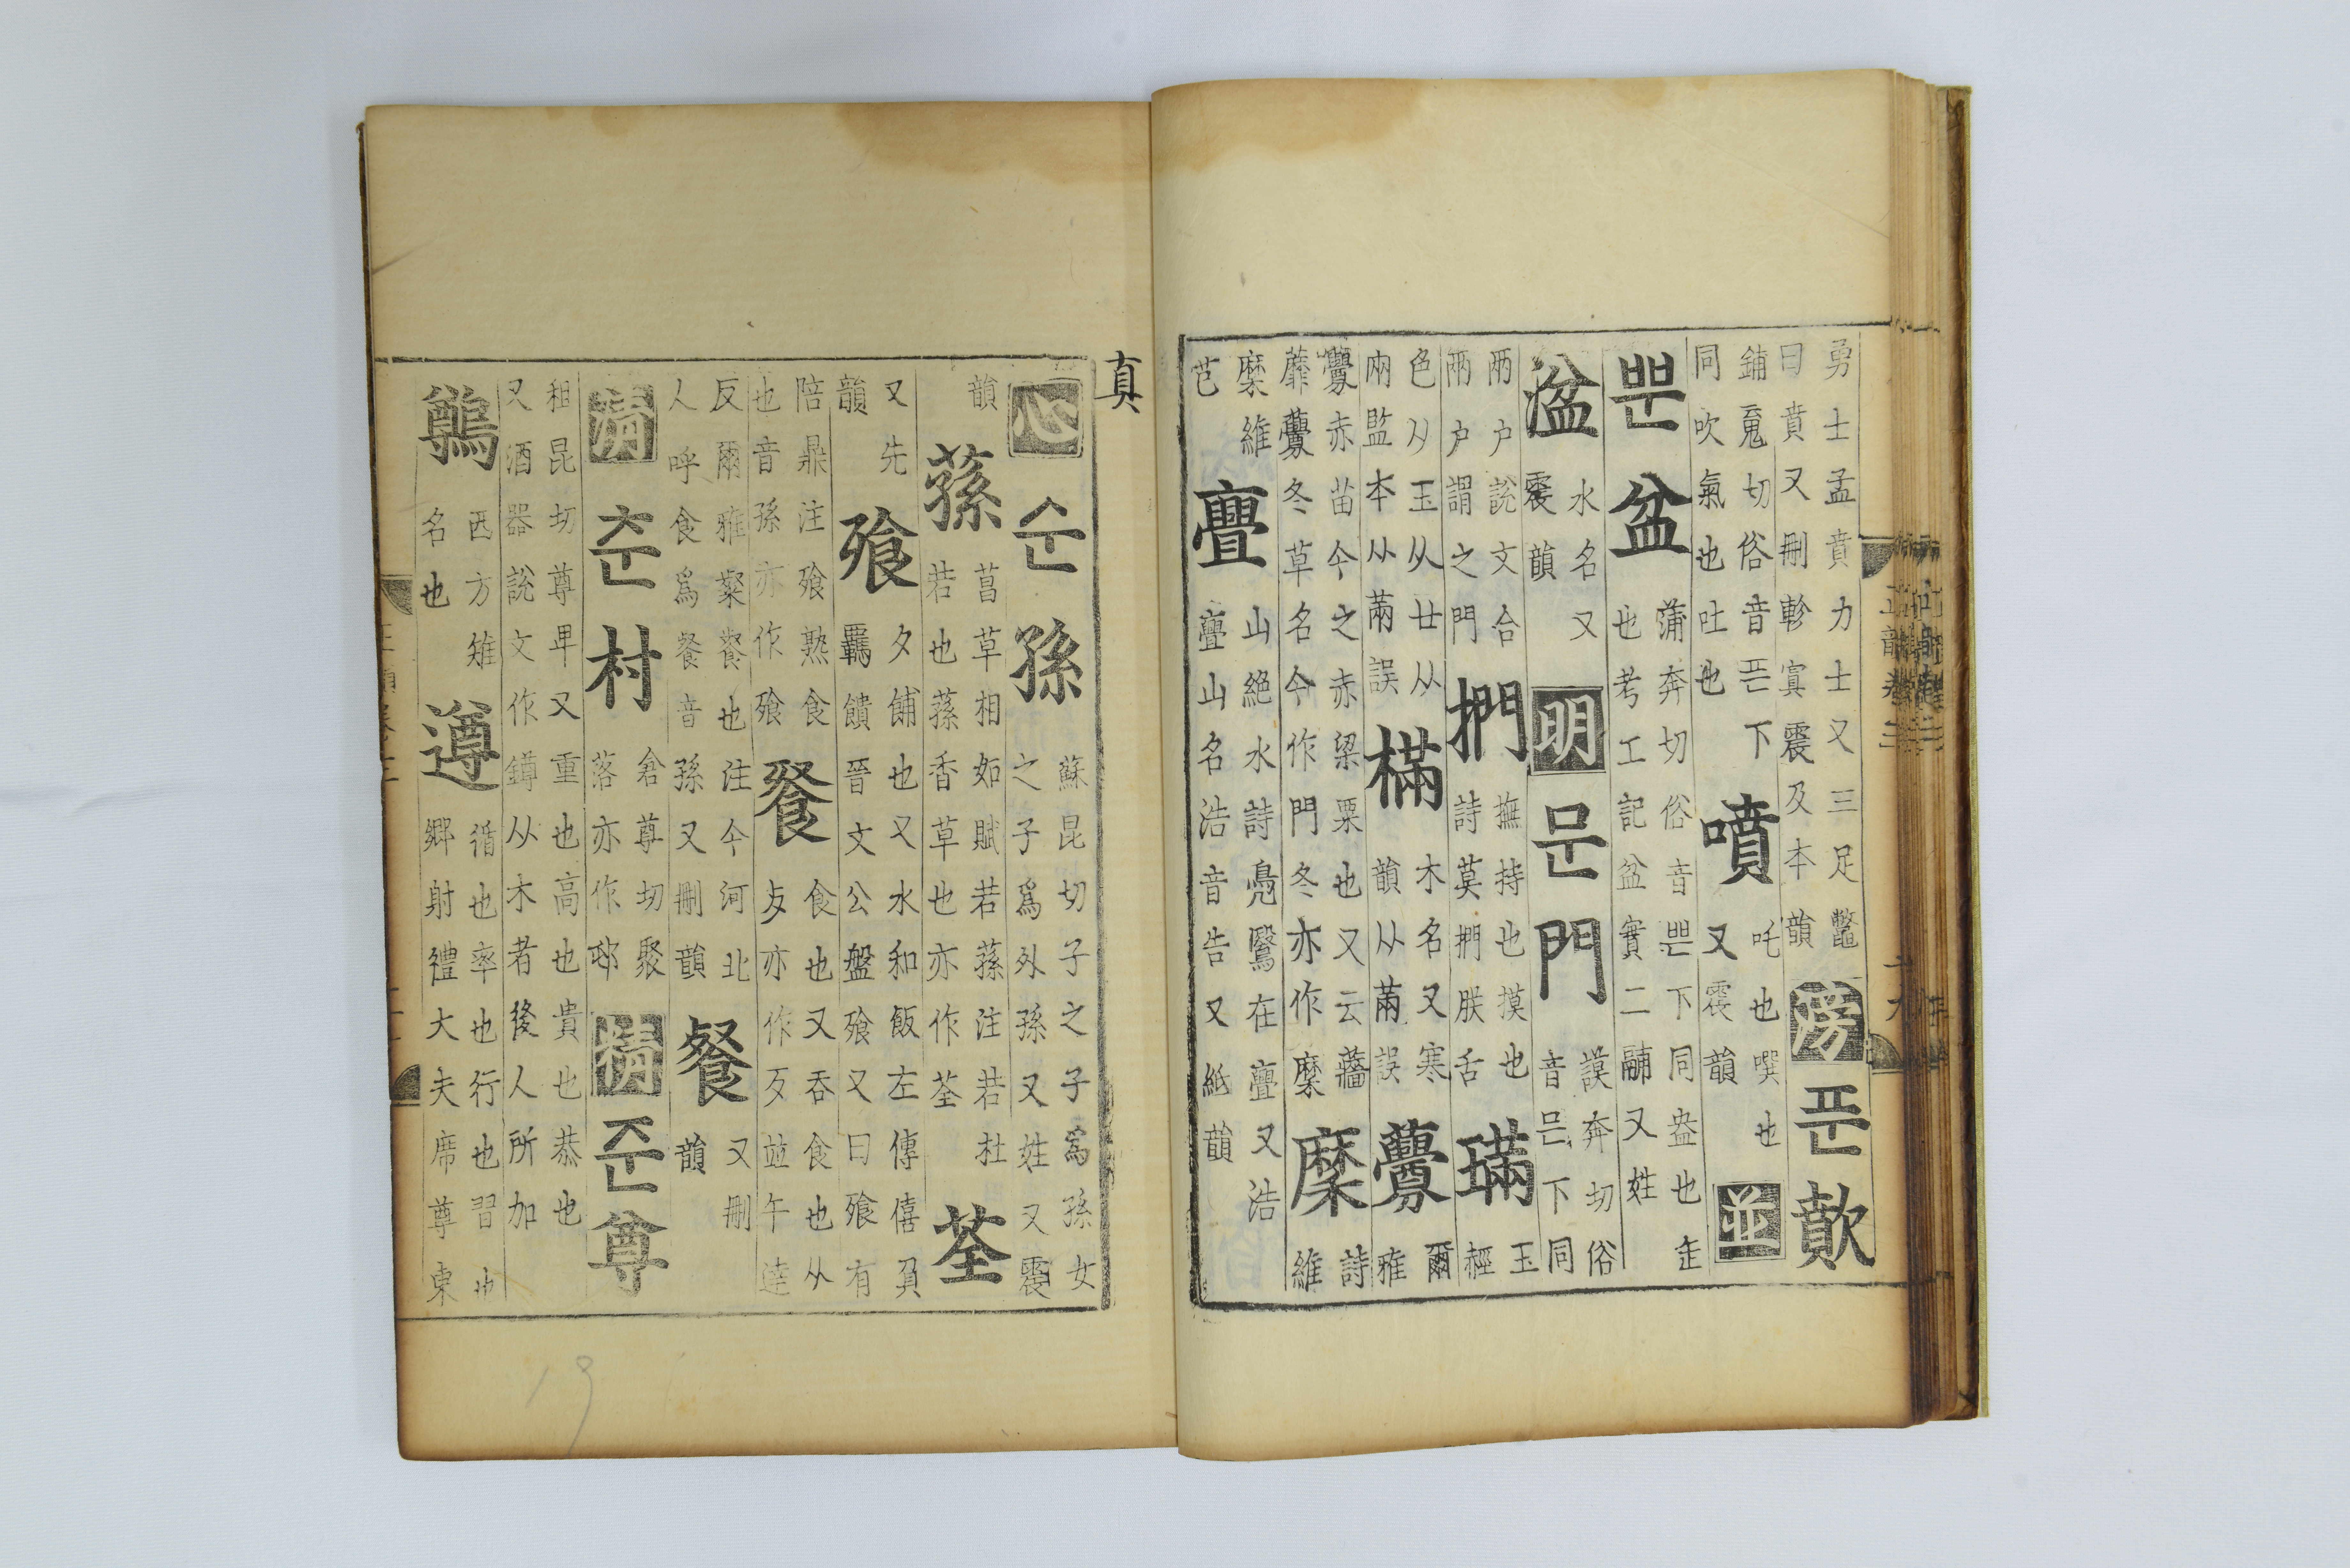 勇士孟賁力士又三足鼈
曰賁又刪軫寘震及本韻
滂 푼 歕
鋪䰟切俗音픈下
同吹氣也吐也
噴
吒也噀也
又震韻
並
뿐 盆
蒲奔切俗音쁜下同盎也
也考工記盆實二鬴又姓
湓
水名又
震韻
明 문 門
謨奔切俗
音믄下同
兩户說文合
兩户謂之門
捫
撫持也摸也
詩莫捫朕舌
璊
玉
䞓
色从玉从廿从
㒳監本从㒼誤
樠
木名又寒
韻从㒼誤
虋
爾
雅
虋赤苗今之赤梁粟也又云蘠
蘼虋冬草名今作門冬亦作穈
穈
詩
維
穈維
芑
亹
山絶水詩鳧鷖在亹又浩
亹山名浩音告又紙韻
真
心 순 孫
蘇昆切子之子爲孫女
之子爲外孫又姓又震
韻
蓀
菖草相如賦若蓀注若杜
若也蓀香草也亦作荃
荃
又先
韻
飱
夕餔也又水和飯左傳僖負
羈饋晉文公盤飱又曰飱有
陪鼎注飱熟食
也音孫亦作飱
飧
食也又吞食也从
夕亦作歹竝午逹
反爾雅粲餐也注今河北
人呼食爲餐音孫又刪韻
餐
又刪
韻
淸 춘 村
倉尊切聚
落亦作邨
精 준 尊
租昆切尊卑又重也高也貴也恭也
又酒器說文作鐏从木者後人所加
鷷
西方雉
名也
遵
循也率也行也習也
鄉射禮大夫席尊東
19